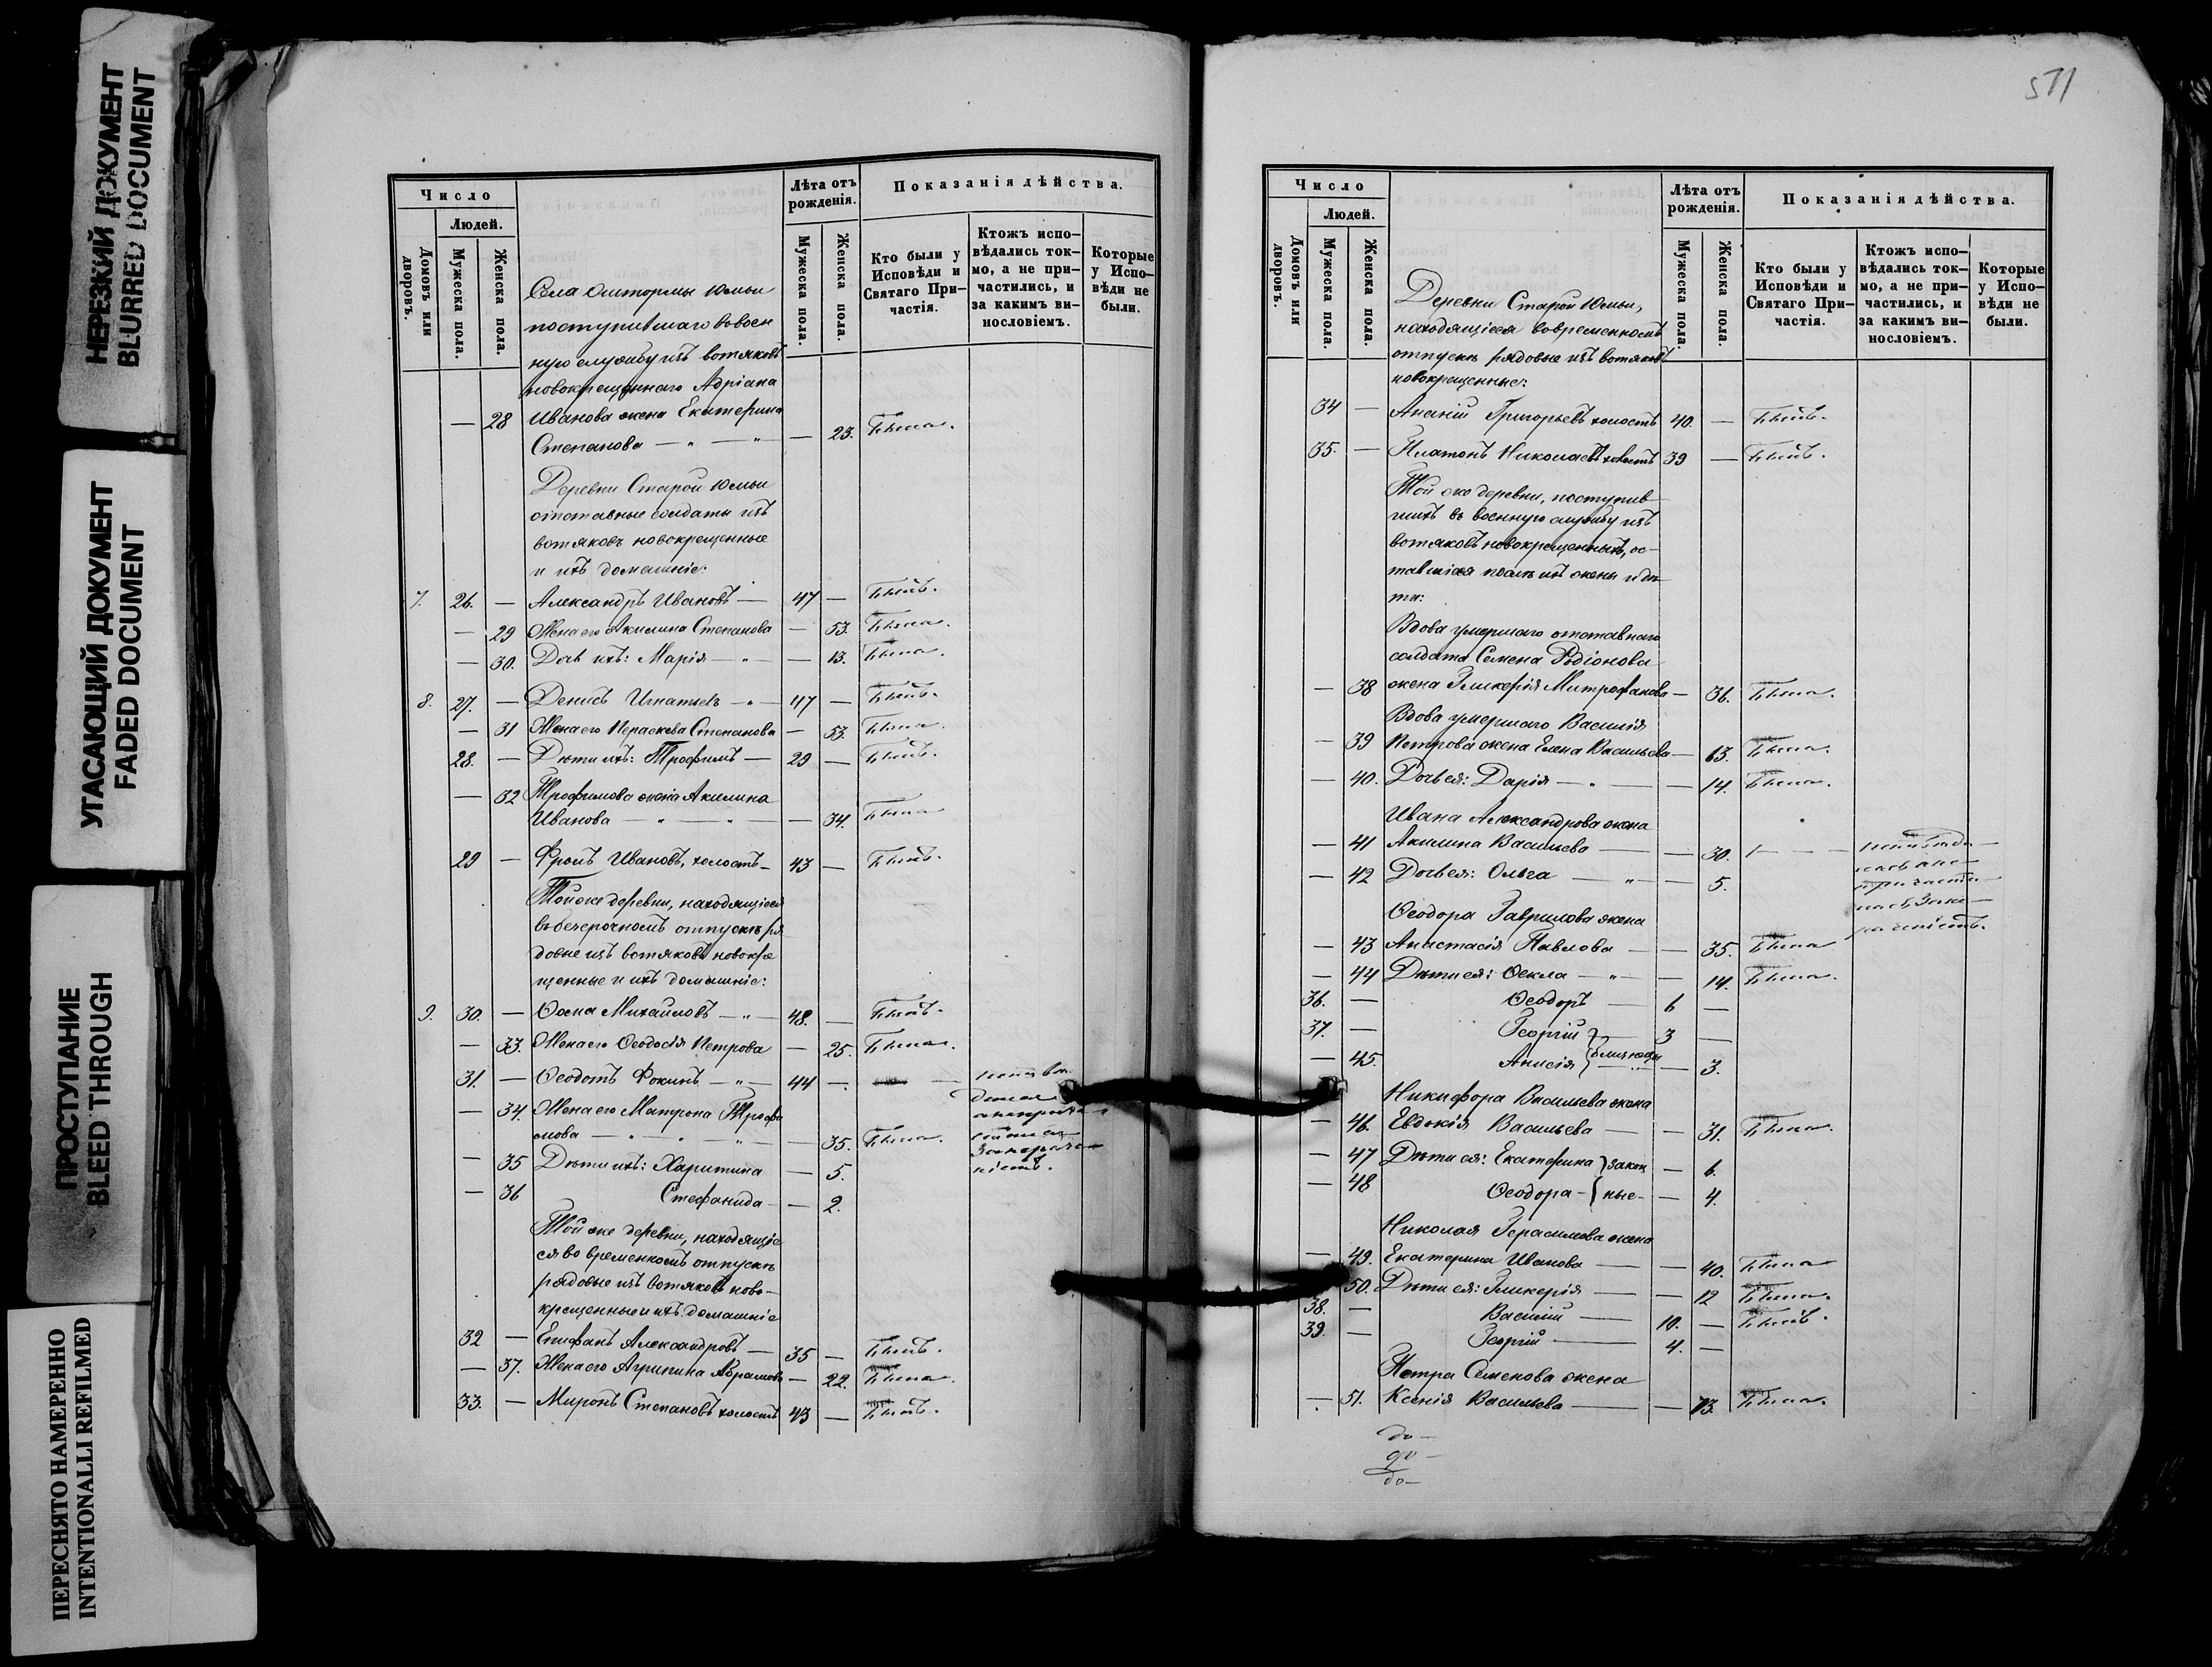 НЕРЕЗКИЙ ДОКУМЕНТ
BLURRED DOCUMENT
УГАСАЮЩИЙ ДОКУМЕНТ
FADED DOCUMENT
ПРОСТУПАНИЕ
BLEED THROUGH
ПЕРЕСНЯТО НАМЕРЕННО
INTENTIONALLI REFILMED
Число
Людей.
Домовъ или дворовъ.
Мужеска пола.
Женска пола.
Лѣта отъ рожденія.
Мужеска пола.
Женска пола.
Показанія дѣйства.
Кто были у Исповѣди и Святаго При-
частія.
Ктожъ испо-
вѣдались ток-
мо, а не при-
частились, и
за какимъ ви-
нословіемъ.
Которые
у Испо-
вѣди не
были.
Села Юмьи
поступившаго въ воен
ную службу изъ вотяковъ
новокрещеннаго Адріана
— 28 Иванова жена Екатерина
Степанова — " — " — 23. Была.
Деревни Старой Юмьи
отставные солдаты изъ
вотяковъ новокрещенные
и ихъ домашніе:
7. 26. — Александръ Ивановъ — 47 — Былъ.
— 29 Жена его Акилина Степанова — 53. Была.
— 30. Дочь ихъ: Марія — " — — 13. Была.
8. 27. — Денисъ Игнатьевъ — " — 47 — Былъ.
— 31 Жена его Параскева Степанова — 53. Была.
28. — Дѣти ихъ: Трофимъ — 29 — Былъ.
— 32 Трофимова жена Акилина
Иванова — " — " — — 34. Была
29 — Фролъ Ивановъ, холостъ — 43 — Былъ.
Той же деревни, находящіеся
въ безсрочномъ отпускѣ ря
довые изъ вотяковъ новокре
щенные и ихъ домашніе:
9. 30. — Ѳома Михайловъ — " — 48. — Былъ.
— 33. Жена его Ѳеодосія Петрова — 25. Была.
31. — Ѳеодотъ Фокинъ — " — 44 —. —
— 34. Жена его Матрона Трофи
мова — " — " — — 35. Была.
— 35 Дѣти ихъ: Харитина — 5.
— 36 Стефанида — — 2.
Той же деревни, находящіе
ся во временномъ отпускѣ
рядовые изъ вотяковъ ново-
крещенные и ихъ домашніе
32 — Епифанъ Александровъ — 35 — Былъ.
— 37. Жена его Агрипина Абрамова — 22. Была.
33. — Миронъ Степановъ холостъ 43 — Былъ.
571
Число
Людей.
Домовъ или дворовъ.
Мужеска пола.
Женска пола.
Лѣта отъ рожденія.
Мужеска пола.
Женска пола.
Показанія дѣйства.
Кто были у Исповѣди и Святаго При-
частія.
Ктожъ испо-
вѣдались ток-
мо, а не при-
частились, и
за какимъ ви-
нословіемъ.
Которые
у Испо-
вѣди не
были.
Деревни Старой Юмьи,
находящіеся во временномъ
отпускѣ рядовые изъ вотяковъ
новокрещенные:
34 — Ананій Григорьевъ холостъ 40. — Былъ.
35. — Платонъ Николаевъ холостъ 39 — Былъ.
Той же деревни, поступив
шихъ въ военную службу изъ
вотяковъ новокрещенныхъ, ос-
тавшіяся послѣ ихъ жены и дѣ
ти:
Вдова умершаго отставнаго
солдата Семена Родіонова
— 38 жена Гликерія Митрофанова — 36. Была.
Вдова умершаго Василія
— 39 Петрова жена Елена Васильева — 63. Была.
— 40. Дочь ея: Дарія — " — — 14. Была.
Ивана Александрова жена
— 41 Акилина Васильева — — 30. — исповѣда
— 42 Дочь ея: Ольга — " — — 5. лась а не
причасти
лась
Ѳеодора Гаврилова жена
— 43 Анастасія Павлова — — 35. Была
— 44 Дѣти ея: Ѳекла — " — — 14. Была.
36. — Ѳеодоръ — 6 —
37. — Георгій } — 3 —
— 45. Анисія } близнецы — 3.
Никифора Васильева жена
— 46. Евдокія Васильева — — 31. Была.
— 47 Дѣти ея: Екатерина } закон — 6.
— 48 Ѳеодора — } ные — — 4.
Николая Герасимова жена
— 49. Екатерина Иванова — — 40. Была
50. Дѣти ея: Гликерія — — 12 Была.
38. — Василій — 10. — Былъ.
39. — Георгій — 4. —
Петра Семенова жена
— 51. Ксенія Васильева — — 73. Была.